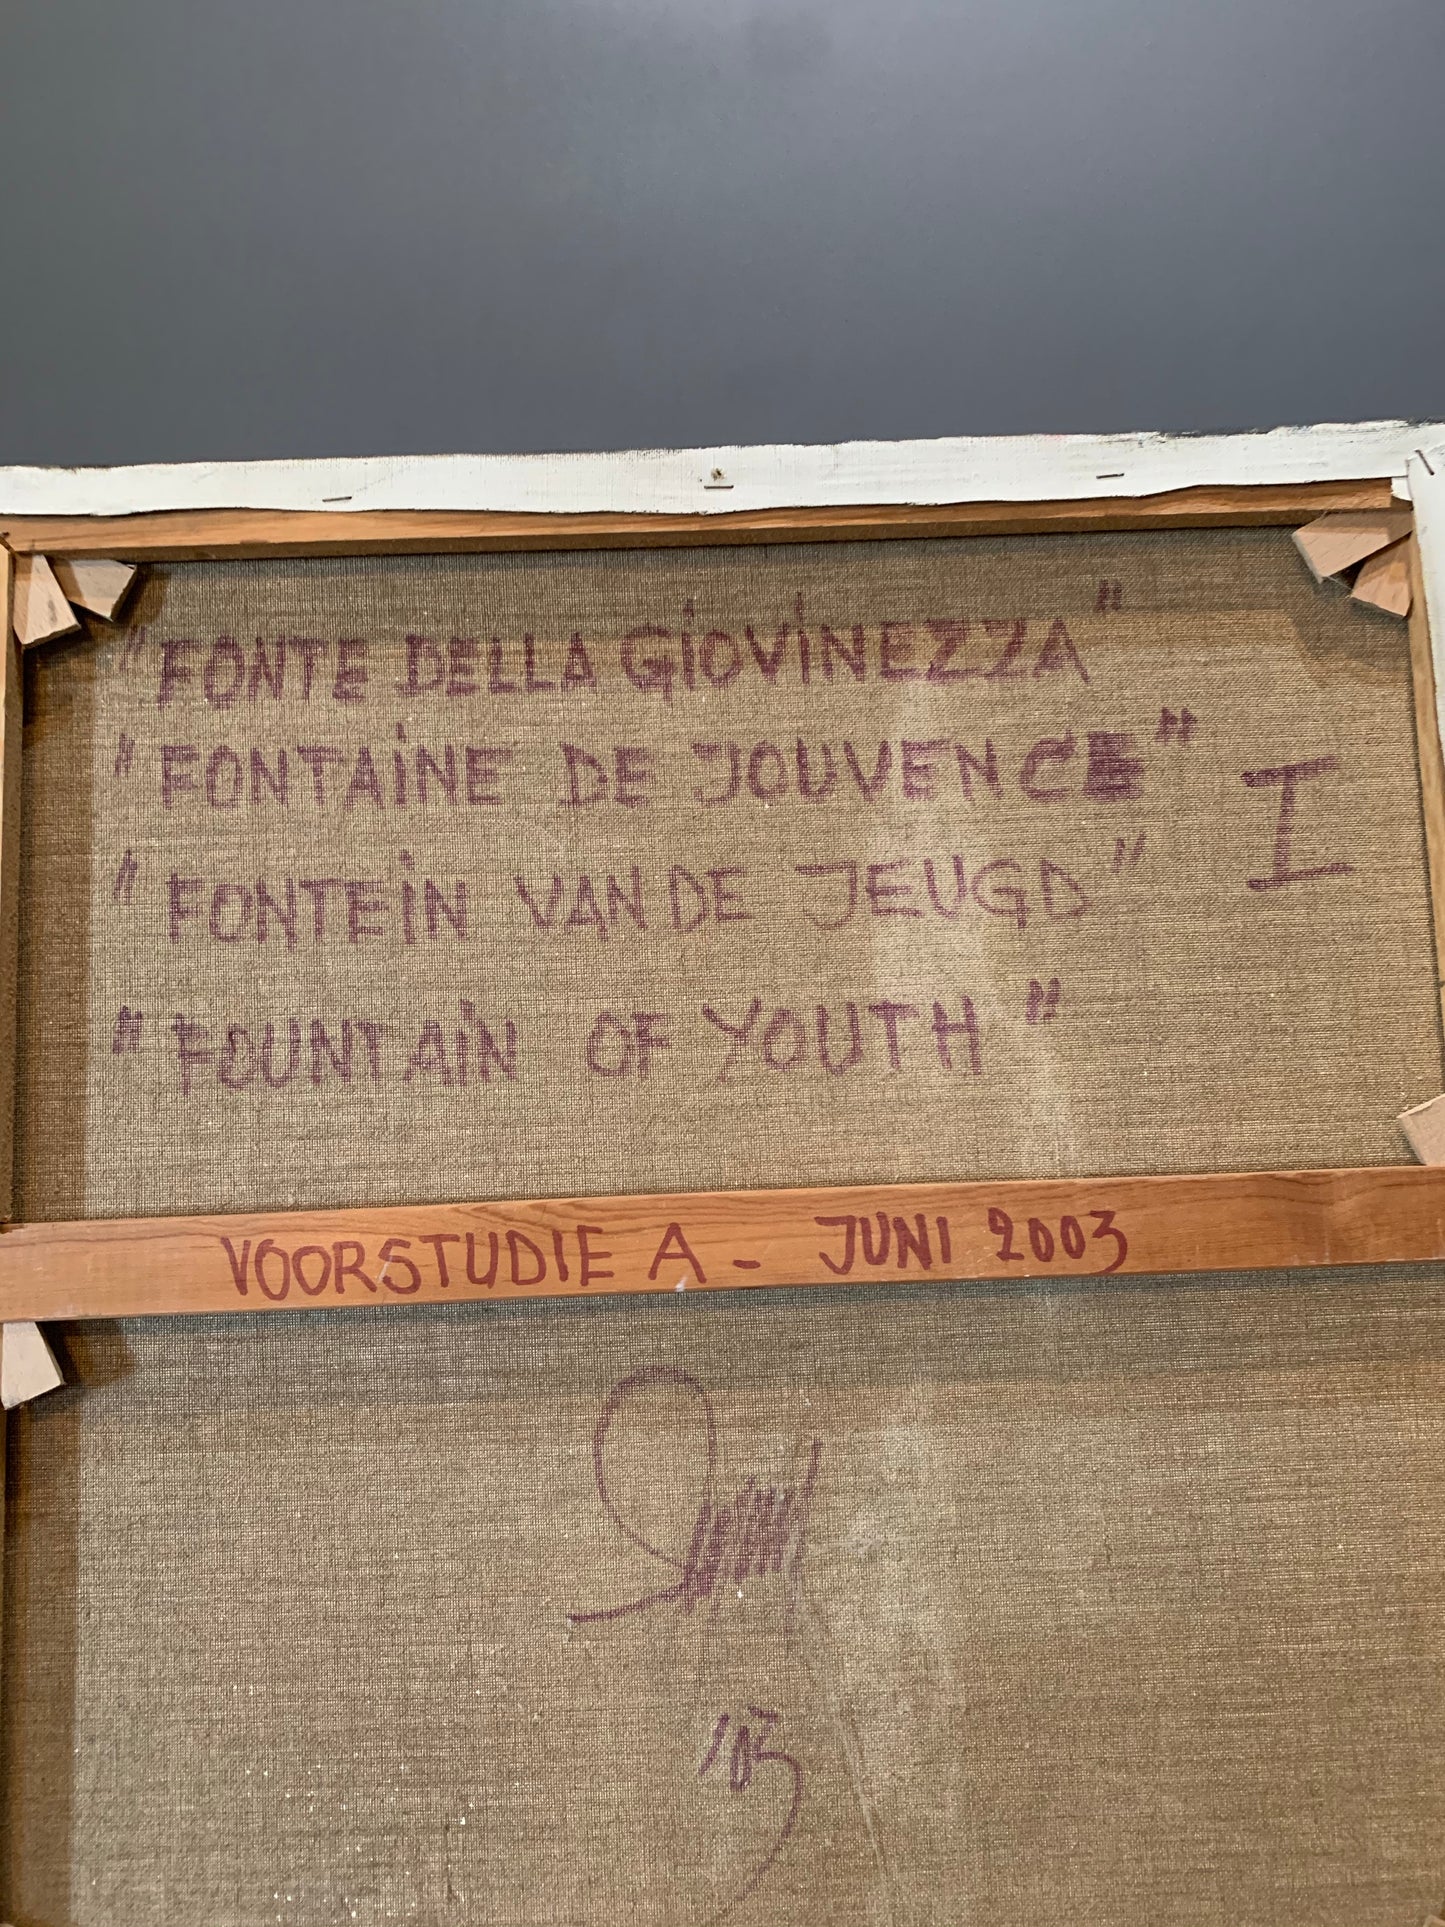 "FONTE DELLA GIOVINEZZA"
"FONTAINE DE JOUVENCE"
I
"FONTEIN VAN DE JEUGD"
"FOUNTAIN OF YOUTH"
VOORSTUDIE A - JUNI 2003
'03